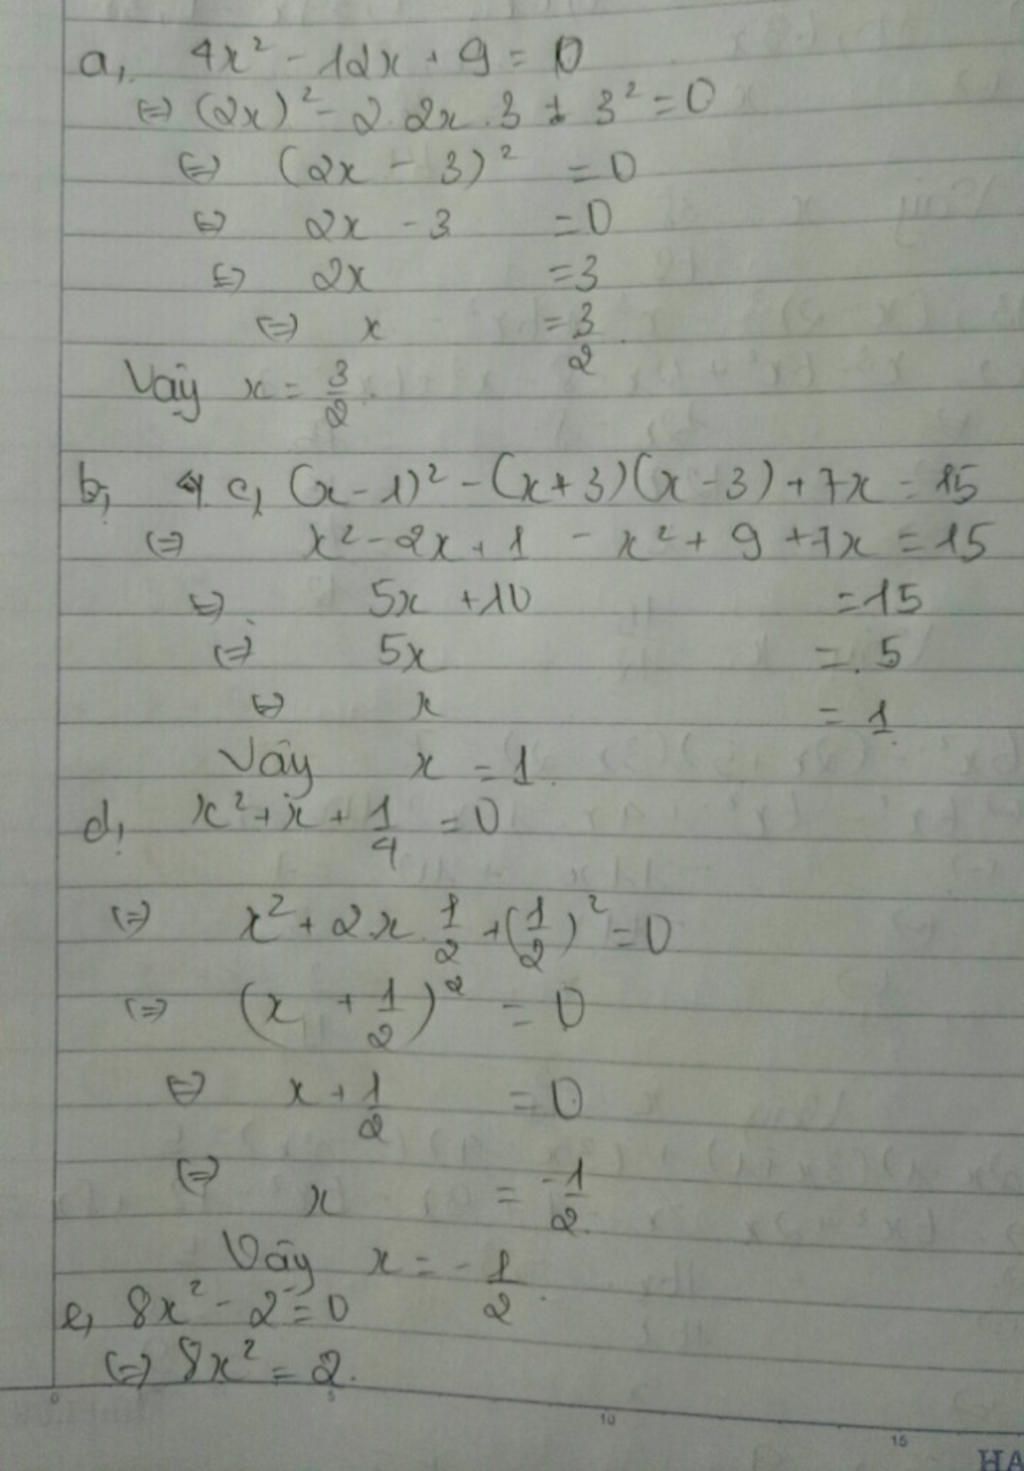 a, 4x² - 12x + 9 = 0
(=) (2x)² - 2.2x.3 + 3² = 0
(=) (2x - 3)² = 0
(=) 2x - 3 = 0
(=) 2x = 3
(=) x = 3/2.
Vậy x = 3/2.
b, 4 c, (x-1)² - (x+3)(x-3) + 7x = 15
(=) x² - 2x + 1 - x² + 9 + 7x = 15
(=) 5x + 10 = 15
(=) 5x = 5
(=) x = 1.
Vậy x = 1.
d, x² + x + 1/4 = 0
(=) x² + 2x.1/2 + (1/2)² = 0
(=) (x + 1/2)² = 0
(=) x + 1/2 = 0
(=) x = -1/2.
Vậy x = -1/2.
e, 8x² - 2 = 0
(=) 8x² = 2.
0 5 10 15
HA